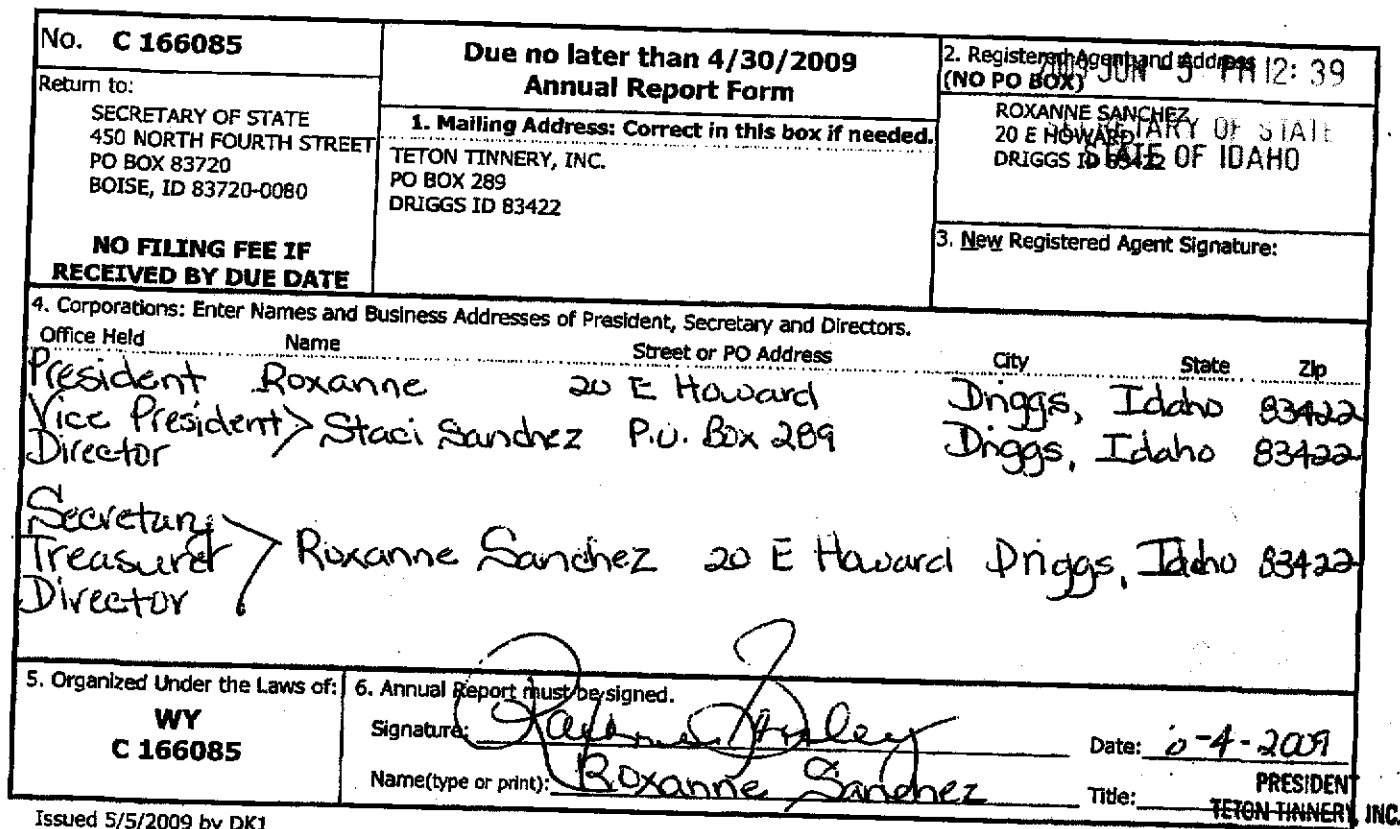 No. C 166085
Return to:
SECRETARY OF STATE
450 NORTH FOURTH STREET
PO BOX 83720
BOISE, ID 83720-0080
NO FILING FEE IF
RECEIVED BY DUE DATE
Due no later than 4/30/2009
Annual Report Form
1. Mailing Address: Correct in this box if needed.
TETON TINNERY, INC.
PO BOX 289
DRIGGS ID 83422
2. Registered Agent and Address
(NO PO BOX)
JUN -5 PM 12: 39
ROXANNE SANCHEZ
20 E HOWARD
DRIGGS ID 83422
SECRETARY OF STATE
STATE OF IDAHO
3. New Registered Agent Signature:
4. Corporations: Enter Names and Business Addresses of President, Secretary and Directors.
Office Held Name Street or PO Address City State Zip
President Roxanne 20 E Howard Driggs, Idaho 83422
Vice President Staci Sanchez P.O. Box 289 Driggs, Idaho 83422
Director
Secretary
Treasurer Roxanne Sanchez 20 E Howard Driggs, Idaho 83422
Director
5. Organized Under the Laws of:
WY
C 166085
6. Annual Report must be signed.
Signature: Date: -4-2009
Name(type or print): Roxanne Sanchez Title: PRESIDENT
TETON TINNERY, INC
Issued 5/5/2009 by DK1